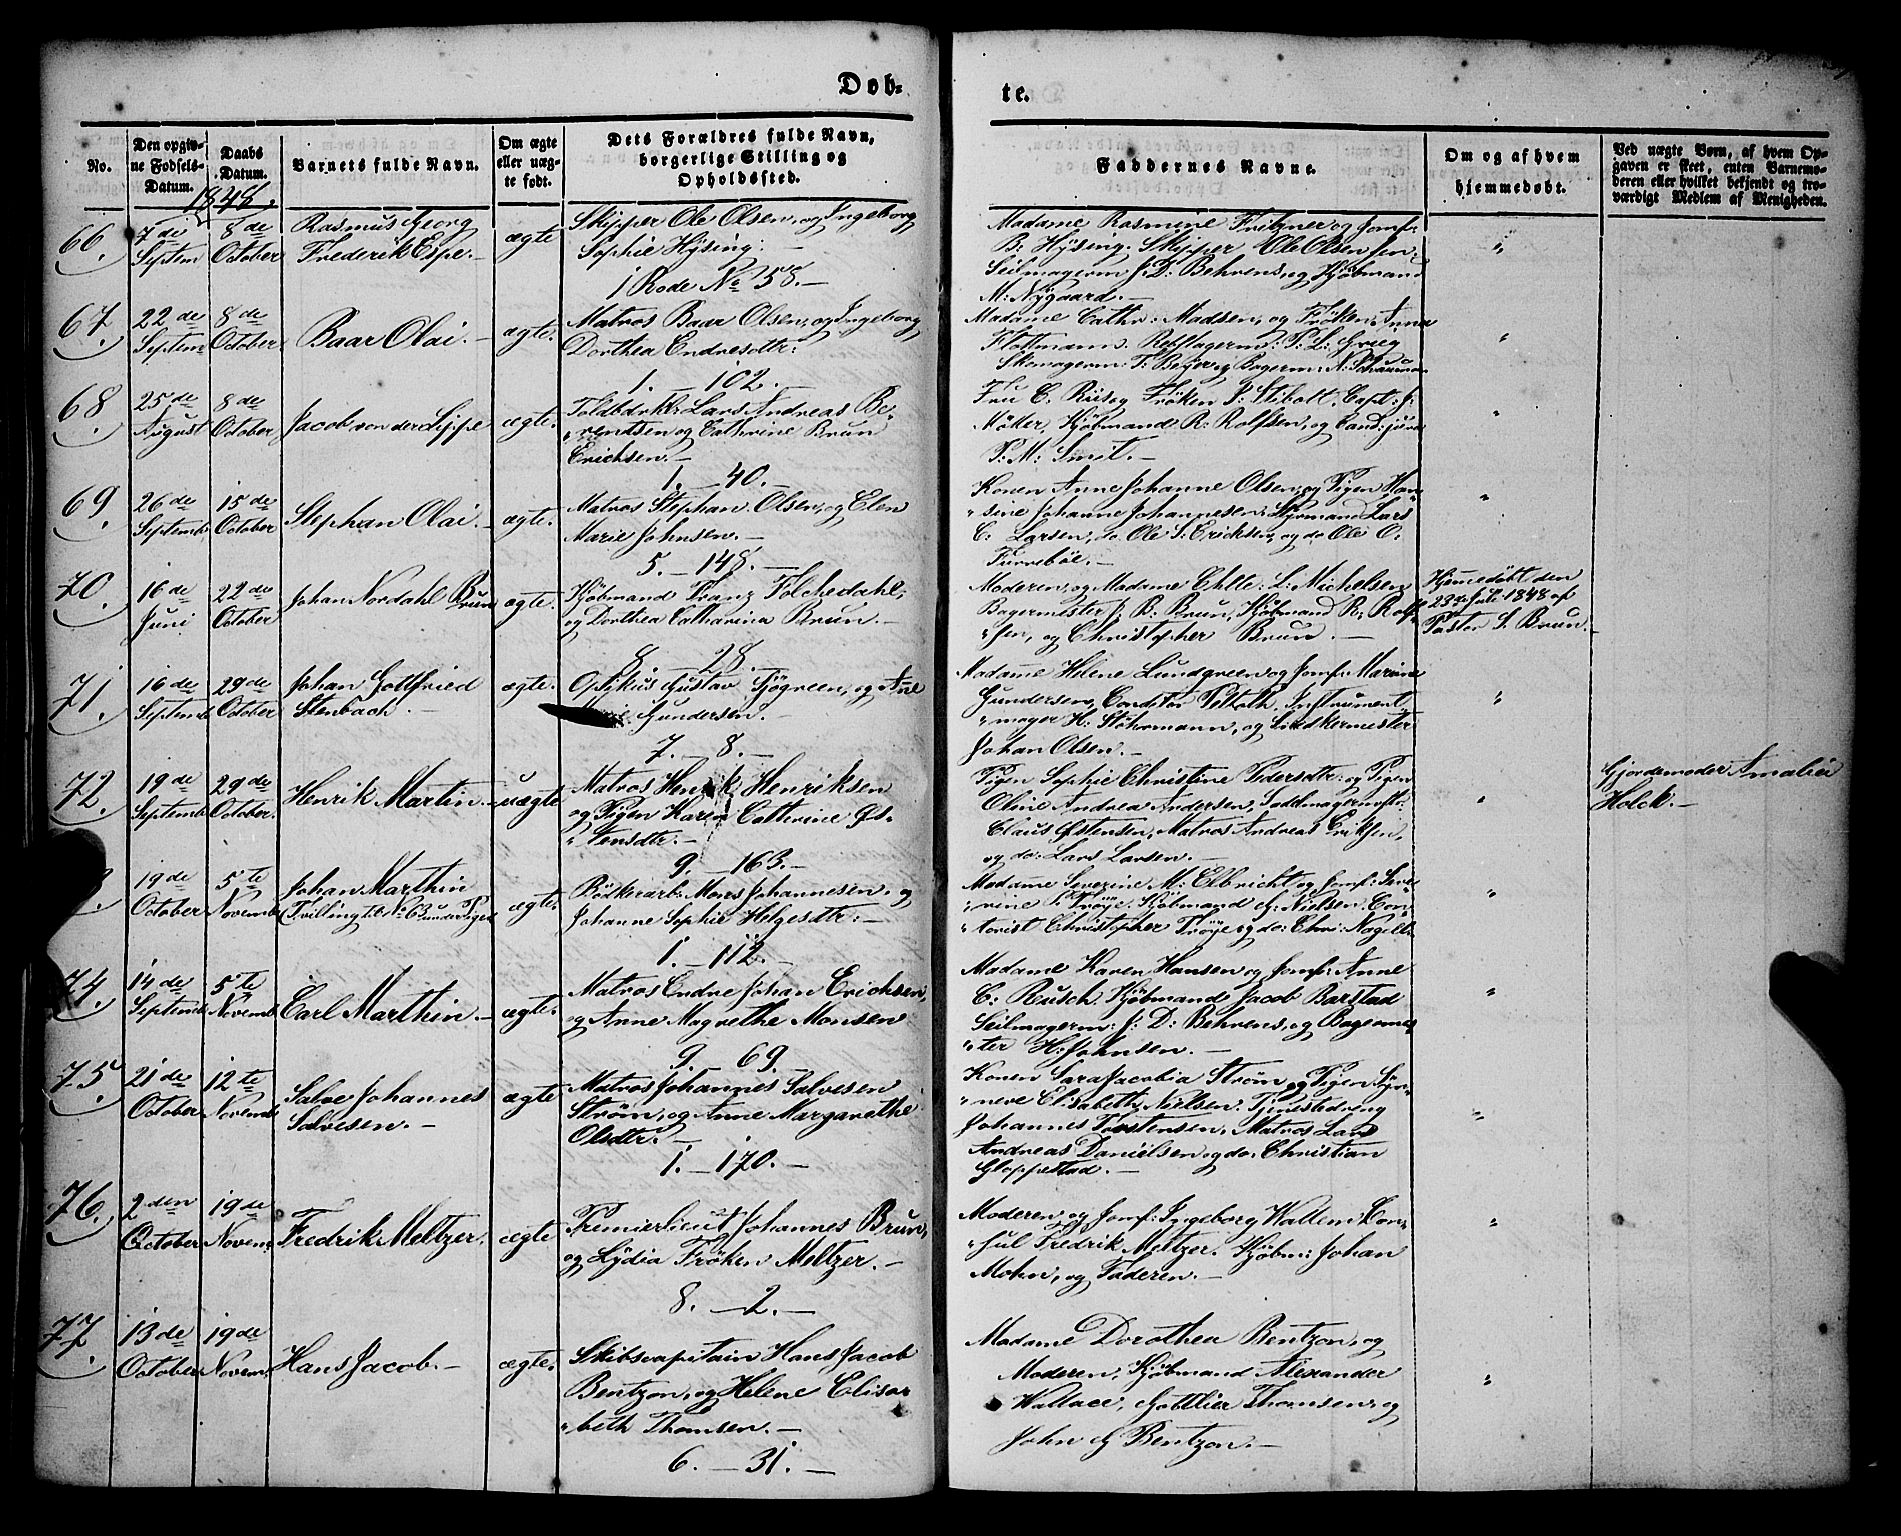 Døb-
te.
No.
Den opgiv-
ne Fødsels-
Datum.
Daabs
Datum.
Barnets fulde Navn.
Om ægte
eller uæg-
te født.
Dets Forældres fulde Navn,
borgerlige Stilling og
Opholdssted.
Faddernes Navne.
Om og af hvem
hjemmedøbt.
Ved uægte Børn, af hvem Op-
gaven er skeet, enten Barnemo-
deren eller hvilket bekjendt og tro-
værdigt Medlem af Menigheden.
1848.
66.
7de
Septem
8de
October
Rasmus Georg
Frederik Espe.-
ægte
Skipper Ole Olsen, og Ingeborg
Sophie Hysing.-
1 Rode No 58.-
Madame Rasmine Fritzner og Jomf:
B. Hysing. Skipper Ole Olsen sen:
Seilmagerm J: D: Behrens, og Kjøbmand
M: Nygaard.-
"
67.
22de
Septem
8de
October
Baar Olai.-
ægte.
Matros Baar Olsen, og Ingeborg
Dorthea Endresdtr:
1. - 102.-
Madame Cathr: Madsen, og Frøken Anna
Flottmann. Rebslagerm: P: L: Grieg
Skomagerm: T: Beyer og Bagerm: N.
"
68.
25de
August
8de
October
Jacob von der Lippe
ægte.
Lars Andreas Be-
"rendtsen og Cathrine Brun
Erichsen.-
1. - 40.-
Fru C. Riis og Frøken P. Stibolt, Capt: J:
Møller, Kjøbmand R. Rolfsen, og Cand: juris
P: M: Smit.-
"
69.
26de
Septemb
15de
October
Stephan Olai.-
ægte.
Matros Stephan Olsen, og Elen
Marie Johnsen.-
5. - 148.-
Konen Anne Johanne Olsen, og Pigen Han-
"sine Johanne Johannesen. Styrmand Lars
C. Larsen, do Ole S. Ericksen, og do Ole O.
Furrebøe.-
"
70.
16de
Juni
22de
October
Johan Nordahl Brun
ægte.
Kjøbmand Franz Folchedahl,
og Dorthea Catharina Brun.-
8 28.-
Moderen, og Madame Chtte: L: Michelsen
Bagermester J. B: Brun, Kjøbmand R. Rolf-
"sen, og Christopher Brun.-
Hjemmedøbt den
23de Juli 1848 af
Pastor S. Brun.-
71.
16de
Septemb
29de
October
Johan Gottfried
Stenbach.-
ægte.
Optikus Gustav Sjøgreen, og Ane
Gundersen.-
7. - 8.-
Madame Helene Lundgreen og Jomf: Marine
Gundersen, Conditor Petroth, Instrument-
"mager H. Støhrmann, og Snedkermester
Johan Olsen.-
"
72.
19de
Septemb
29de
October.
Henrik Martin.-
uægte
Matros Henrik Henriksen
og Pigen Karen Cathrine Øs-
"tensdtr:-
9. - 163.-
Pigen Sophie Christine Pedersdtr: og Pigen
Oline Andrea Andersen, Sadelmagermstr.
Claus Østensen, Matros Andreas Eriksen,
og do: Lars Larsen.-
"
Gjordemoder Amalia
Holck.-
19de
October
5te
Novemb
Johan Marthin
Tvilling til No 63 under Piger
ægte.
Bødkerarb: Mons Johannesen. og
Johanne Sophie Helgesdtr:-
1. - 112.-
Madame Severine M: Elbricht og Jomf: Seve-
"rine P. Trøye. Kjøbmand G: Nielsen. Con-
"torist Christopher Trøye og do: Chr: Nagell.
"
74.
14de
Septemb
5te
Novemb
Carl Marthin.-
ægte.
Matros Endre Johan Erichsen,
og Anne Magrethe Monsen
9. 69.
Madame Karen Hansen og Jomf: Anne
C: Rusch. Kjøbmand Jacob Barstad
Seilmagerm: J: D: Behrens, og Bagermes-
"ter H: Johnsen.-
"
75.
21de
October
12te
Novemb
Salve Johannes
Salvesen.-
ægte
Matros Johannes Salvesen
Strøm, og Anne Margarethe
Olsdtr.-
1. - 170.-
Konen Sara Jacobia Strøm, og Pigen Syn-
"neve Elisabeth Nielsen. Tjenestedreng
Johannes Torstensen, Matros Lars
Andreas Danielsen og do. Christian
Gloppestad.-
"
76.
2den
October
19de
Novem.
Fredrik Meltzer.
ægte
Premierlieut Johannes Brun,
og Lydia Frøken Meltzer.-
8. - 2.-
Moderen og Jomf: Ingeborg Wallem Con-
"sul Fredrik Meltzer. Kjøbm: Johan
Mohn, og Faderen.-
"
77.
13de
October
19de
Novem.
Hans Jacob.-
ægte.
Skibscapitain Hans Jacob
Bentzon, og Helene Elisa-
"beth Thomsen.-
6. - 31.-
Madame Dorothea Bentzon, og
Moderen, Kjøbmand Alexander
Wallace, Gottlieb Thomsen, og
John G Bentzon.-
"